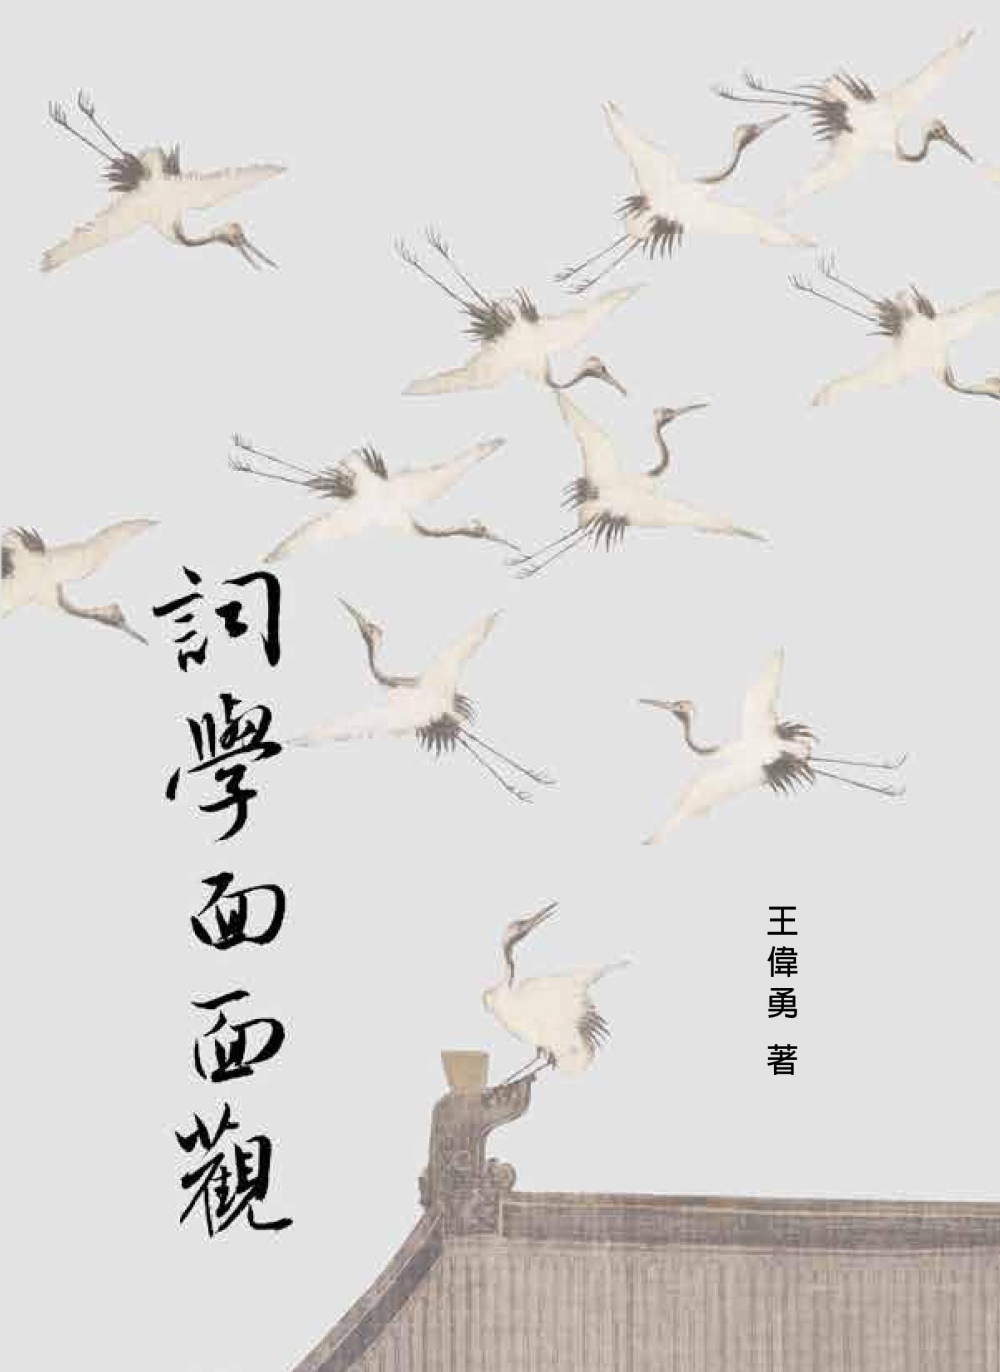 詞學面面觀
王偉勇 著